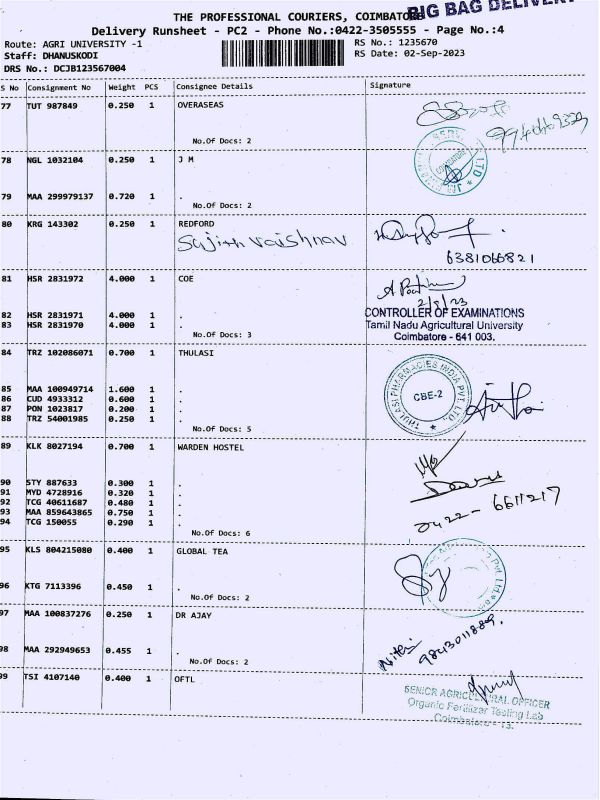 BIG BAG DELIVERY
THE PROFESSIONAL COURIERS, COIMBATORE
Delivery Runsheet - PC2 - Phone No.:0422-3505555 - Page No.:4
Route: AGRI UNIVERSITY -1
RS No.: 1235670
Staff: DHANUSKODI
RS Date: 02-Sep-2023
DRS No.: DCJB123567004
S No Consignment No Weight PCS Consignee Details Signature
77 TUT 987849 0.250 1 OVERSEAS
No.Of Docs: 2
78 NGL 1032104 0.250 1 J M
COIMBATORE
LTD
79 MAA 299979137 0.720 1 .
No.Of Docs: 2
80 KRG 143302 0.250 1 REDFORD
Sujith Vaishnav
6381066821
81 HSR 2831972 4.000 1 COE
2/9/23
CONTROLLER OF EXAMINATIONS
82 HSR 2831971 4.000 1 .
Tamil Nadu Agricultural University
83 HSR 2831970 4.000 1 .
Coimbatore - 641 003.
No.Of Docs: 3
84 TRZ 102086071 0.700 1 THULASI
THULASI PHARMACIES INDIA PVT. LTD.
CBE-2
85 MAA 100949714 1.600 1 .
86 CUD 4933312 0.600 1 .
87 PON 1023817 0.200 1 .
88 TRZ 54001985 0.250 1 .
No.Of Docs: 5
89 KLK 8027194 0.700 1 WARDEN HOSTEL
90 STY 887633 0.300 1 .
91 MYD 4728916 0.320 1 .
92 TCG 40611687 0.480 1 .
93 MAA 859643865 0.750 1 .
94 TCG 150055 0.290 1 .
0422-6611217
No.Of Docs: 6
95 KLS 804215080 0.400 1 GLOBAL TEA
Pvt. Ltd
96 KTG 7113396 0.450 1 .
No.Of Docs: 2
97 MAA 100837276 0.250 1 DR AJAY
9843011889.
98 MAA 292949653 0.455 1 .
No.Of Docs: 2
99 TSI 4107140 0.400 1 OFTL
SENIOR AGRICULTURAL OFFICER
Organic Fertilizer Testing Lab
Coimbatore - 13.